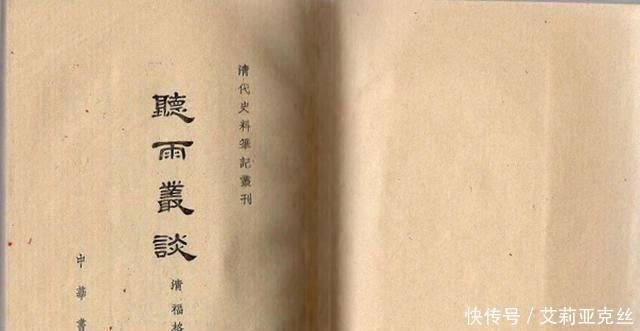 清代史料筆記叢刊
聽雨叢談
清福格
中華書
快传号/艾莉亚克丝